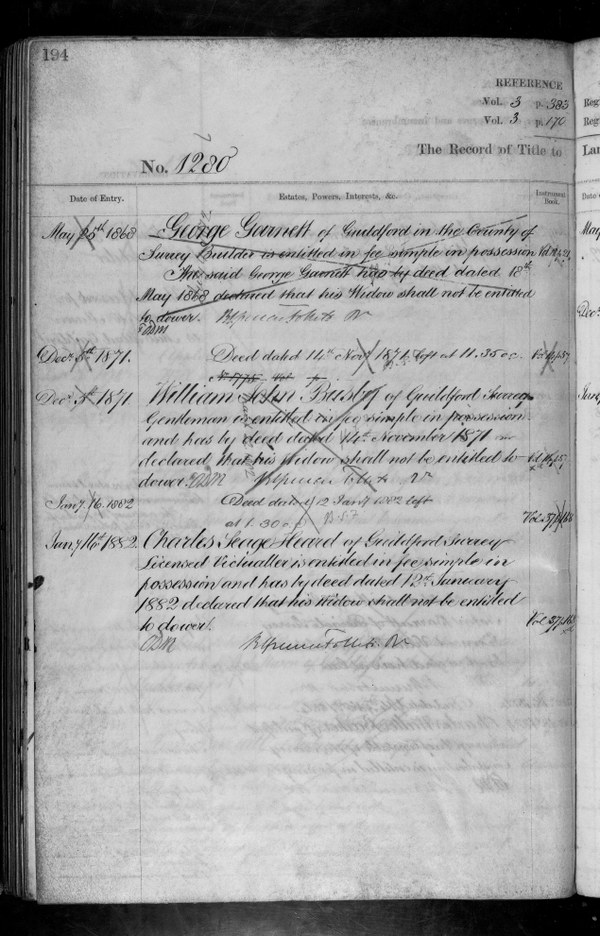 194
REFERENCE
Vol. 3 p. 383
Vol. 3 p. 170
The Record of Title to
No. 1280
Date of Entry.
Estates, Powers, Interests, &c.
Instrument Book.
May 25th 1868
George Garnett of Guildford in the County of
Surrey Builder is entitled in fee simple in possession
The said George Garnett has by deed dated 18th
May 1868 declared that his Widow shall not be entitled
to dower.
Decr. 5th 1871.
Deed dated 14th Novr 1871 left at 11.35 o.c.
Decr. 5th 1871
William John Busby of Guildford Surrey
Gentleman is entitled in fee simple in possession
and has by deed dated 14th November 1871
declared that his Widow shall not be entitled to
dower.
Jany. 16. 1882
Deed dated 12 Jany 1882 left
at 1.30 o.c.
Vol. 37
Jany 16th 1882.
Charles George Heard of Guildford Surrey
Licensed Victualler is entitled in fee simple in
possession and has by deed dated 12th January
1882 declared that his Widow shall not be entitled
to dower.
Vol. 37
Reg
Reg
Lan
Date o
May
Dec